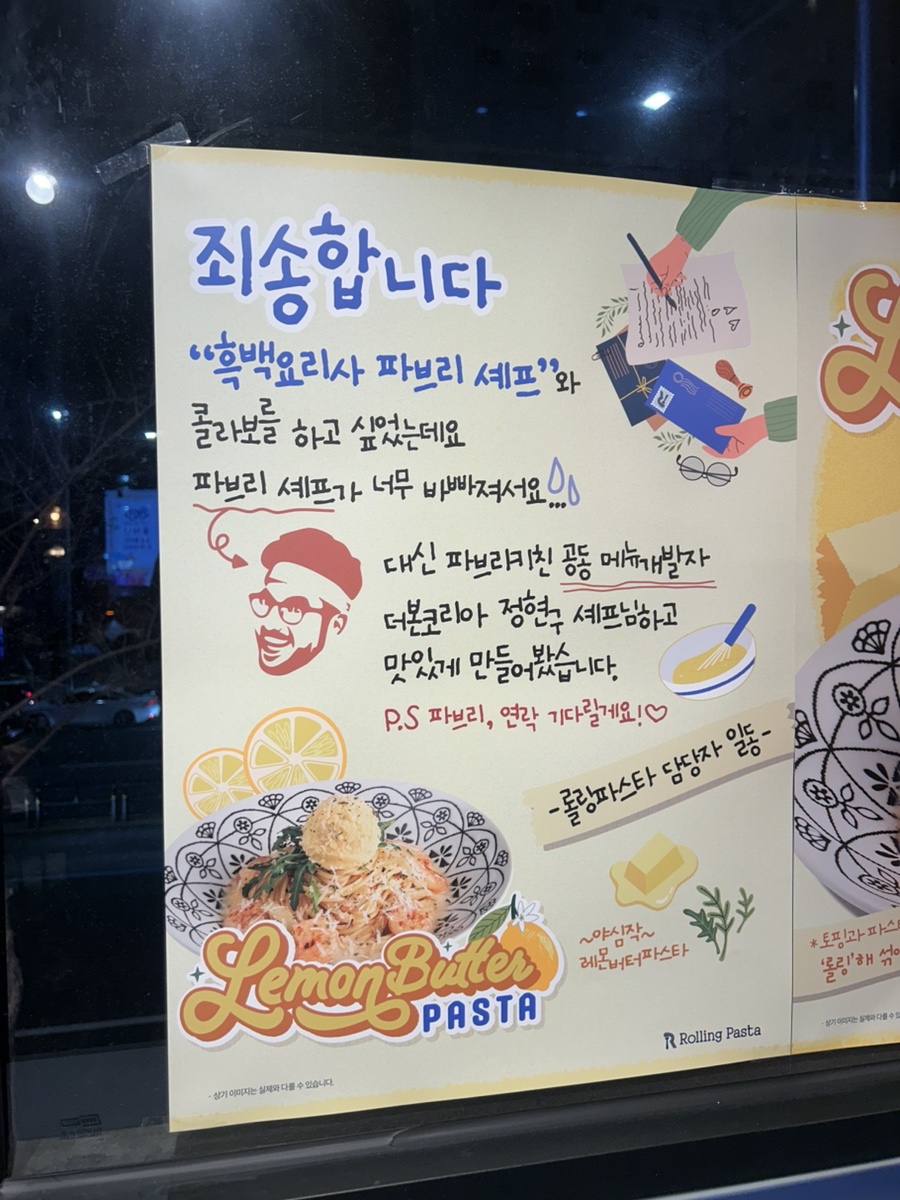 죄송합니다
“흑백요리사 파브리 셰프”와
콜라보를 하고 싶었는데요
파브리 셰프가 너무 바빠져서요...
대신 파브리키친 공동 메뉴개발자
더본코리아 정현구 셰프님하고
맛있게 만들어봤습니다.
P.S 파브리, 연락 기다릴게요!♡
-롤링파스타 담당자 일동-
~야심작~
레몬버터파스타
Lemon Butter
PASTA
Rolling Pasta
- 상기 이미지는 실제와 다를 수 있습니다.
L
*토핑과 파스
'롤링'해 섞어
- 상기 이미지는 실제와 다를 수 있